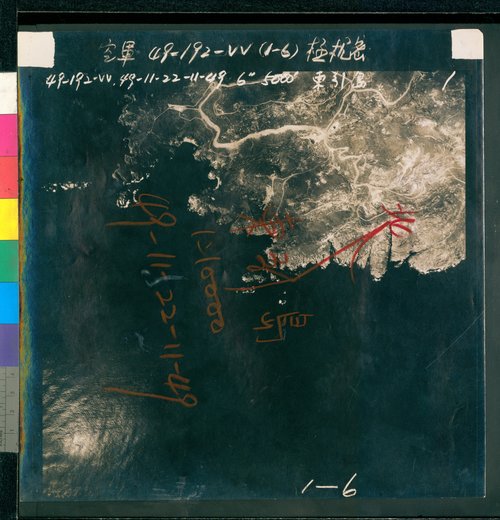 空軍 49-192-VV (1-6) 極機密
49-192-VV. 49-11-22-11-49 6" 5000' 東引島 1
49-11-22-11-49
1:10000
東引島
北
1-6